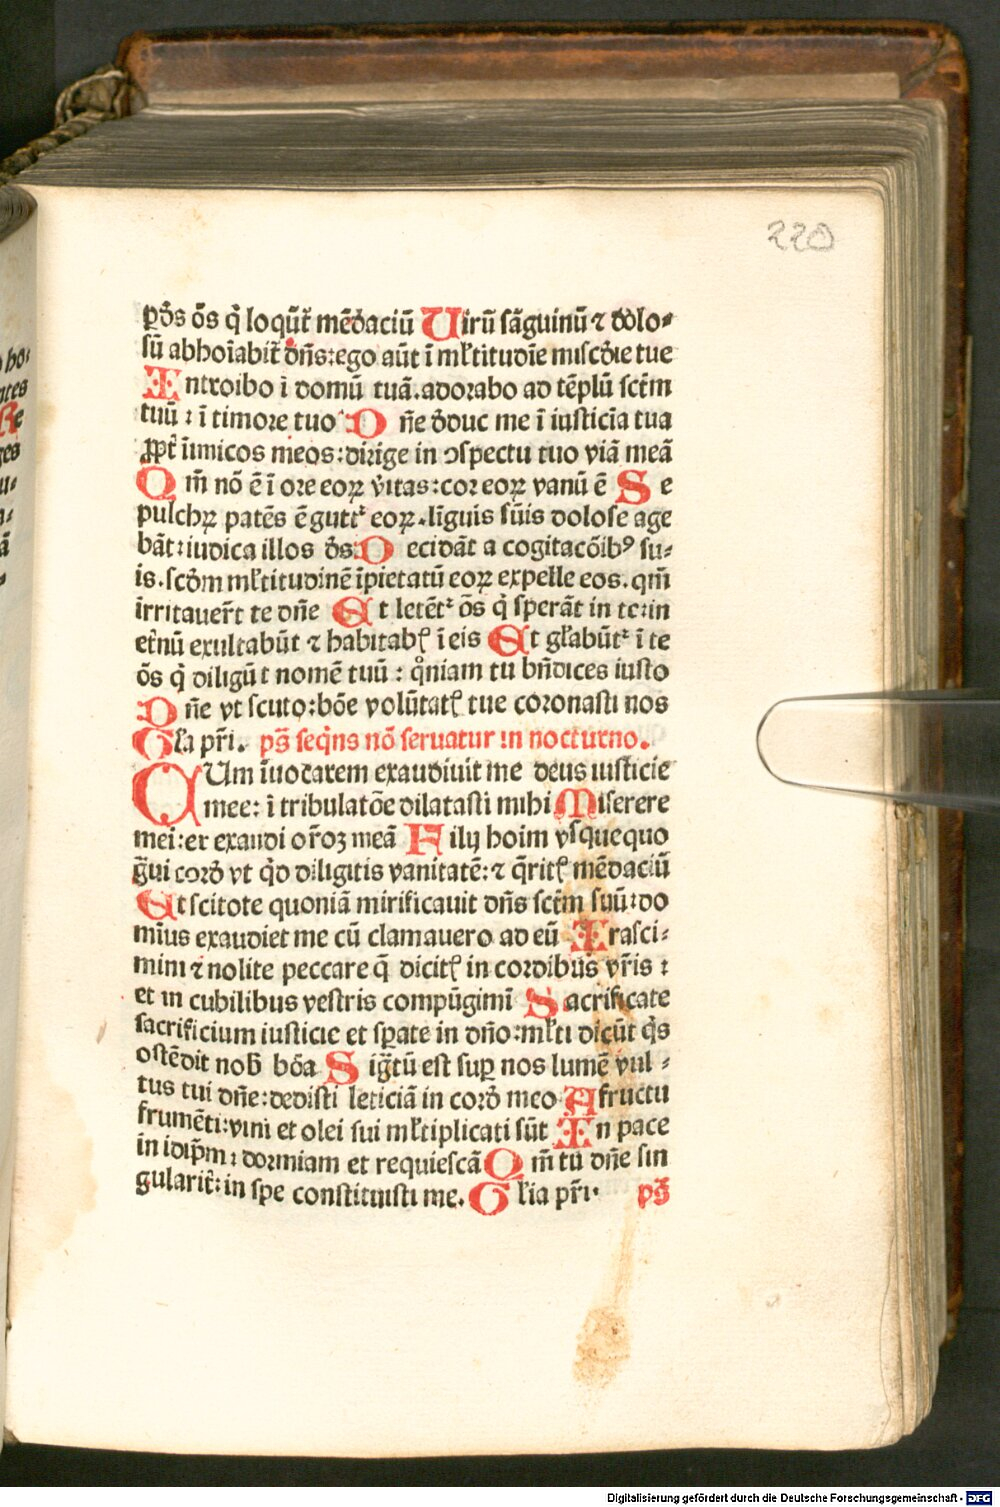 220
ꝑdēs ōs q̄ loqūt᷑ mēdaciū Uirū sāguinū ⁊ dolo⸗
sū abhoīabit᷑ dn̄s:ego aūt ī ml̄titudīe miscd̄ie tue
Introibo ī domū tuā.adorabo ad tēplū sct̄m
tuū : ī timore tuo Dn̄e d̄duc me ī iusticia tua
ꝓpt᷑ inimicos meos:dirige in ↄspectu tuo viā meā
Qm̄ nō ē ī ore eoꝝ v̄itas:cor eoꝝ vanū ē Se
pulchꝝ patēs ē gutt᷑ eoꝝ.līguis suīs dolose age
bāt:iudica illos d̄s: Decidāt a cogitacōibꝰ su⸗
is.scd̄m ml̄titudinē īpietatū eoꝝ expelle eos.qm̄
irritauer̄t te dn̄e Et letēt᷑ ōs q̄ sperāt in te:in
et̄nū exultabūt ⁊ habitabꝭ ī eis Et gl̄abūt᷑ ī te
ōs q̄ diligūt nomē tuū : qͦniam tu bn̄dices iusto
Dn̄e vt scuto:bōe volūtatꝭ tue coronasti nos
Gl̄a pr̄i. ps̄ seq̄ns nō seruatur in nocturno.
CUm īuocarem exaudiuit me deus iusticie
mee: ī tribulatōe dilatasti mihi Miserere
mei:et exaudi or̄oꝫ meā Filij hoim vsquequo
ḡui cord̄ vt qͥd diligitis vanitatē:⁊ q̄ritꝭ mēdaciū
Et scitote quoniā mirificauit dn̄s sct̄m suū:do
mīus exaudiet me cū clamauero ad eū Irasci⸗
mini ⁊ nolite peccare q̄ dicitꝭ in cordibus vr̄is :
et in cubilibus vestris compūgimī Sacrificate
sacrificium iusticie et sꝑate in dn̄o:ml̄ti dicūt q̄s
ostēdit nob̄ bōa Sig̅tū est suꝑ nos lumē vul⸗
tus tui dn̄e:dedisti leticiā in cord̄ meo A fructu
frumēti:vini et olei sui ml̄tiplicati sūt In pace
in idip̄m : dormiam et requiescā Qm̄ tu dn̄e sin
gularit᷑:in spe constituisti me. Gl̄ia pr̄i. ps̄
Digitalisierung gefördert durch die Deutsche Forschungsgemeinschaft - DFG